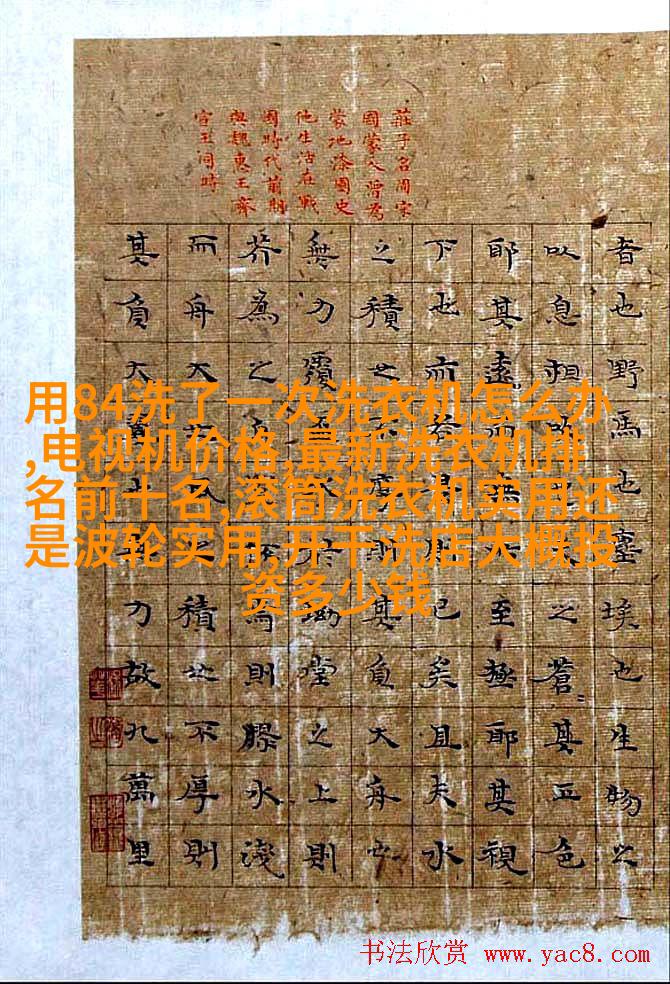 莊子名周宋
國蒙人曾為
蒙地漆園史
他生活在戰
國時代前期
與魏惠王齊
宣王同時
者也野馬也塵埃也生物之
以息相吹也天之蒼〻其正色
耶其遠而無所至極耶其視
下也而若是則已矣且夫水
之積也不厚則其負大舟也
無力覆杯水於坳堂之上則
芥為之舟置杯焉則膠水淺
而舟大也風之積也不厚則
其負大翼也無力故九萬里
用84洗了一次洗衣机怎么办
,电视机价格,最新洗衣机排
名前十名,滚筒洗衣机实用还
是波轮实用,开干洗店大概投
资多少钱
书法欣赏 www.yac8.com